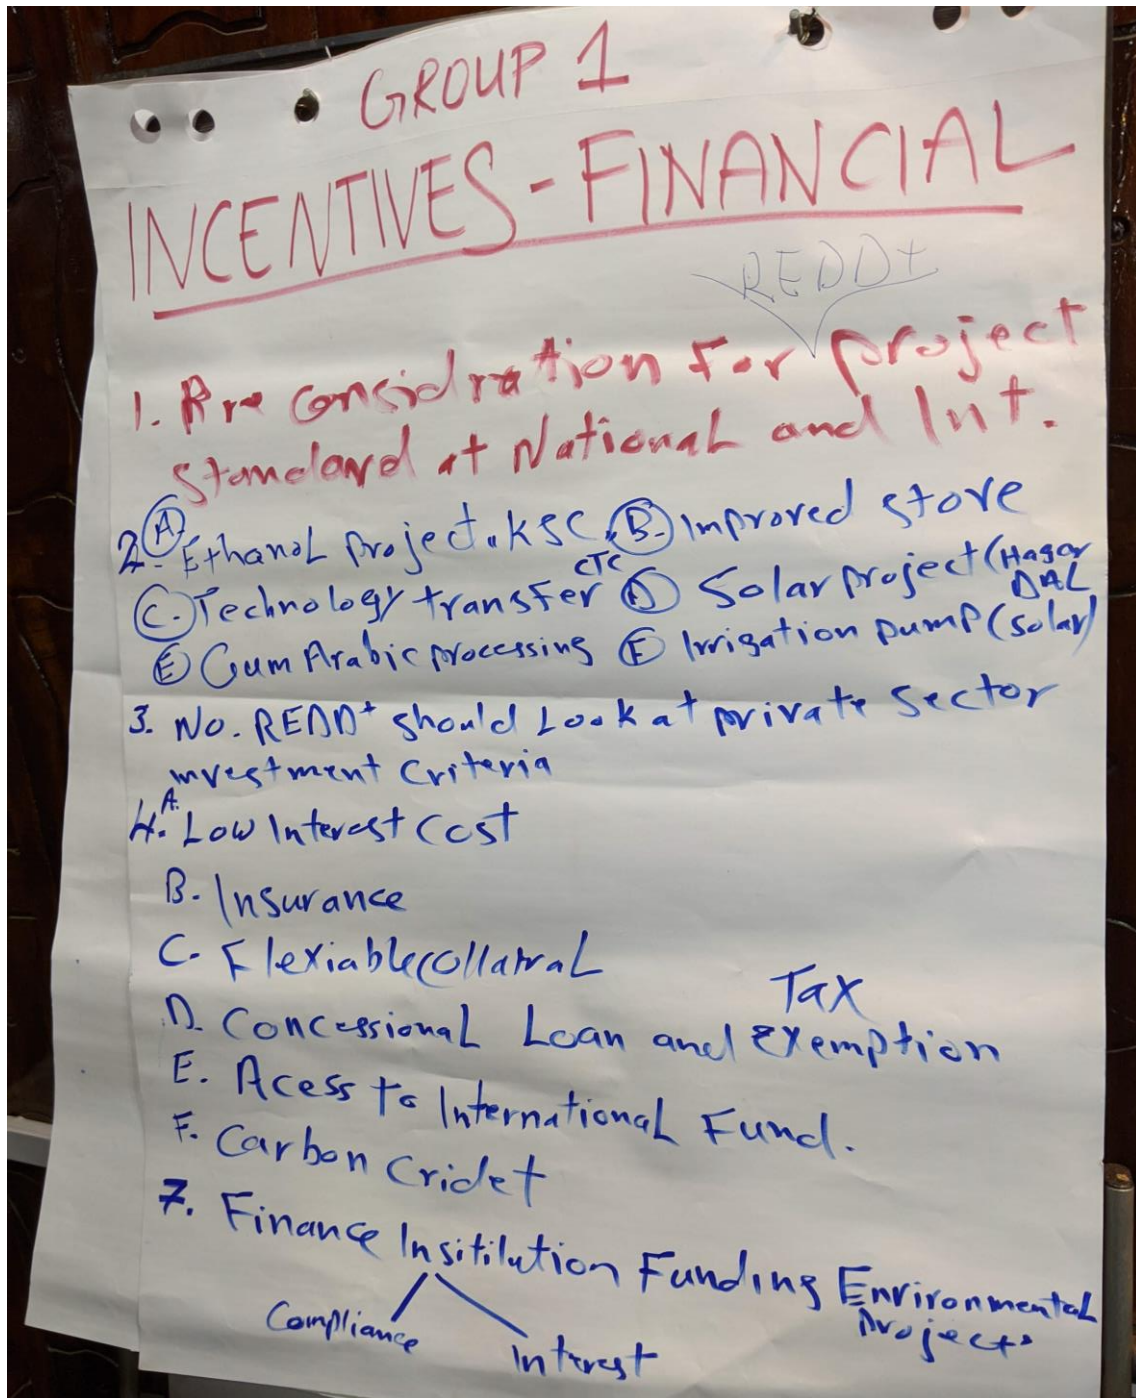 GROUP 1
INCENTIVES - FINANCIAL
REDD+
1. Pre considration For project
standard at National and Int.
2. A. Ethanol project. KSC. B. Improved stove
C. Technology transfer CTC D Solar project (Hagar
DAL
E Gum Arabic processing F Irrigation pump (solar)
3. No. REDD+ should Look at private sector
investment criteria
4. A. Low Interest Cost
B. Insurance
C. Flexiable collatral
D. Concessional Loan and Tax Exemption
E. Acess to International Fund.
F. Carbon Cridet
7. Finance Insitilution Funding Environmental
projects
Compliance
Interest